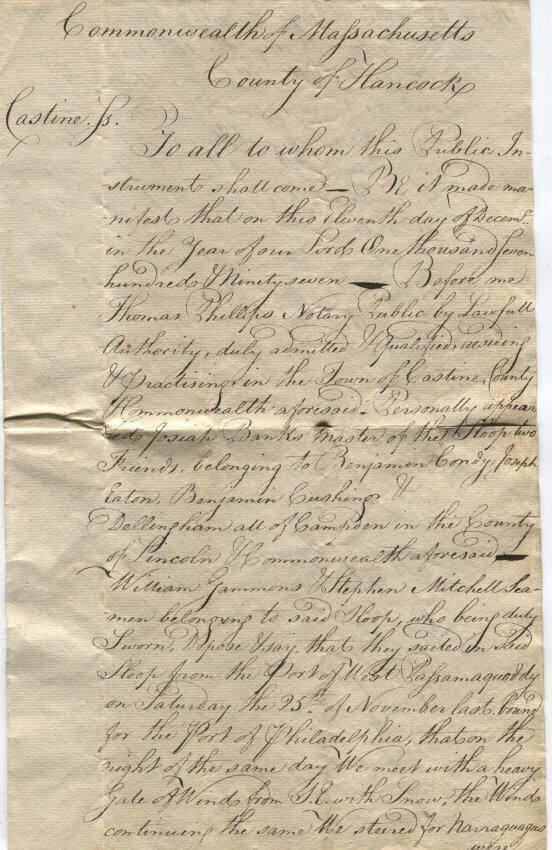 Commonwealth of Massachusetts
County of Hancock
Castine Ss.
To all to whom this Public In-
strument shall come — BE it made ma-
nifest that on this Eleventh day of Decemr.
in the Year of our Lord One thousand Seven
hundred & Ninety seven — Before me
Thomas Phillips Notary Public by Lawfull
Authority, duly admitted & Qualified, residing
& Practising in the Town of Castine, County
& Commonwealth aforesaid. Personally appear
ed Josiah Banks Master of the Sloop two
Friends, belonging to Benjamin Condy, Joseph
Eaton, Benjamin Cushing &
Dellingham all of Campden in the County
of Lincoln & Commonwealth aforesaid —
William Gammons & Stephen Mitchell Sea-
men belonging to said Sloop, who being duly
Sworn, Depose & say, that they sailed in said
Sloop from the Port of West Passamaquoddy
on Saturday the 25th of November last. bound
for the Port of Philadelphia, that on the
night of the same day We meet with a heavy
Gale of Winds from S.E. with Snow, the Wind
continuing the same We steered for Narraguagus
were